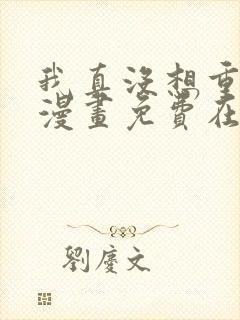 我真没想重
漫畫免費在
劉慶文